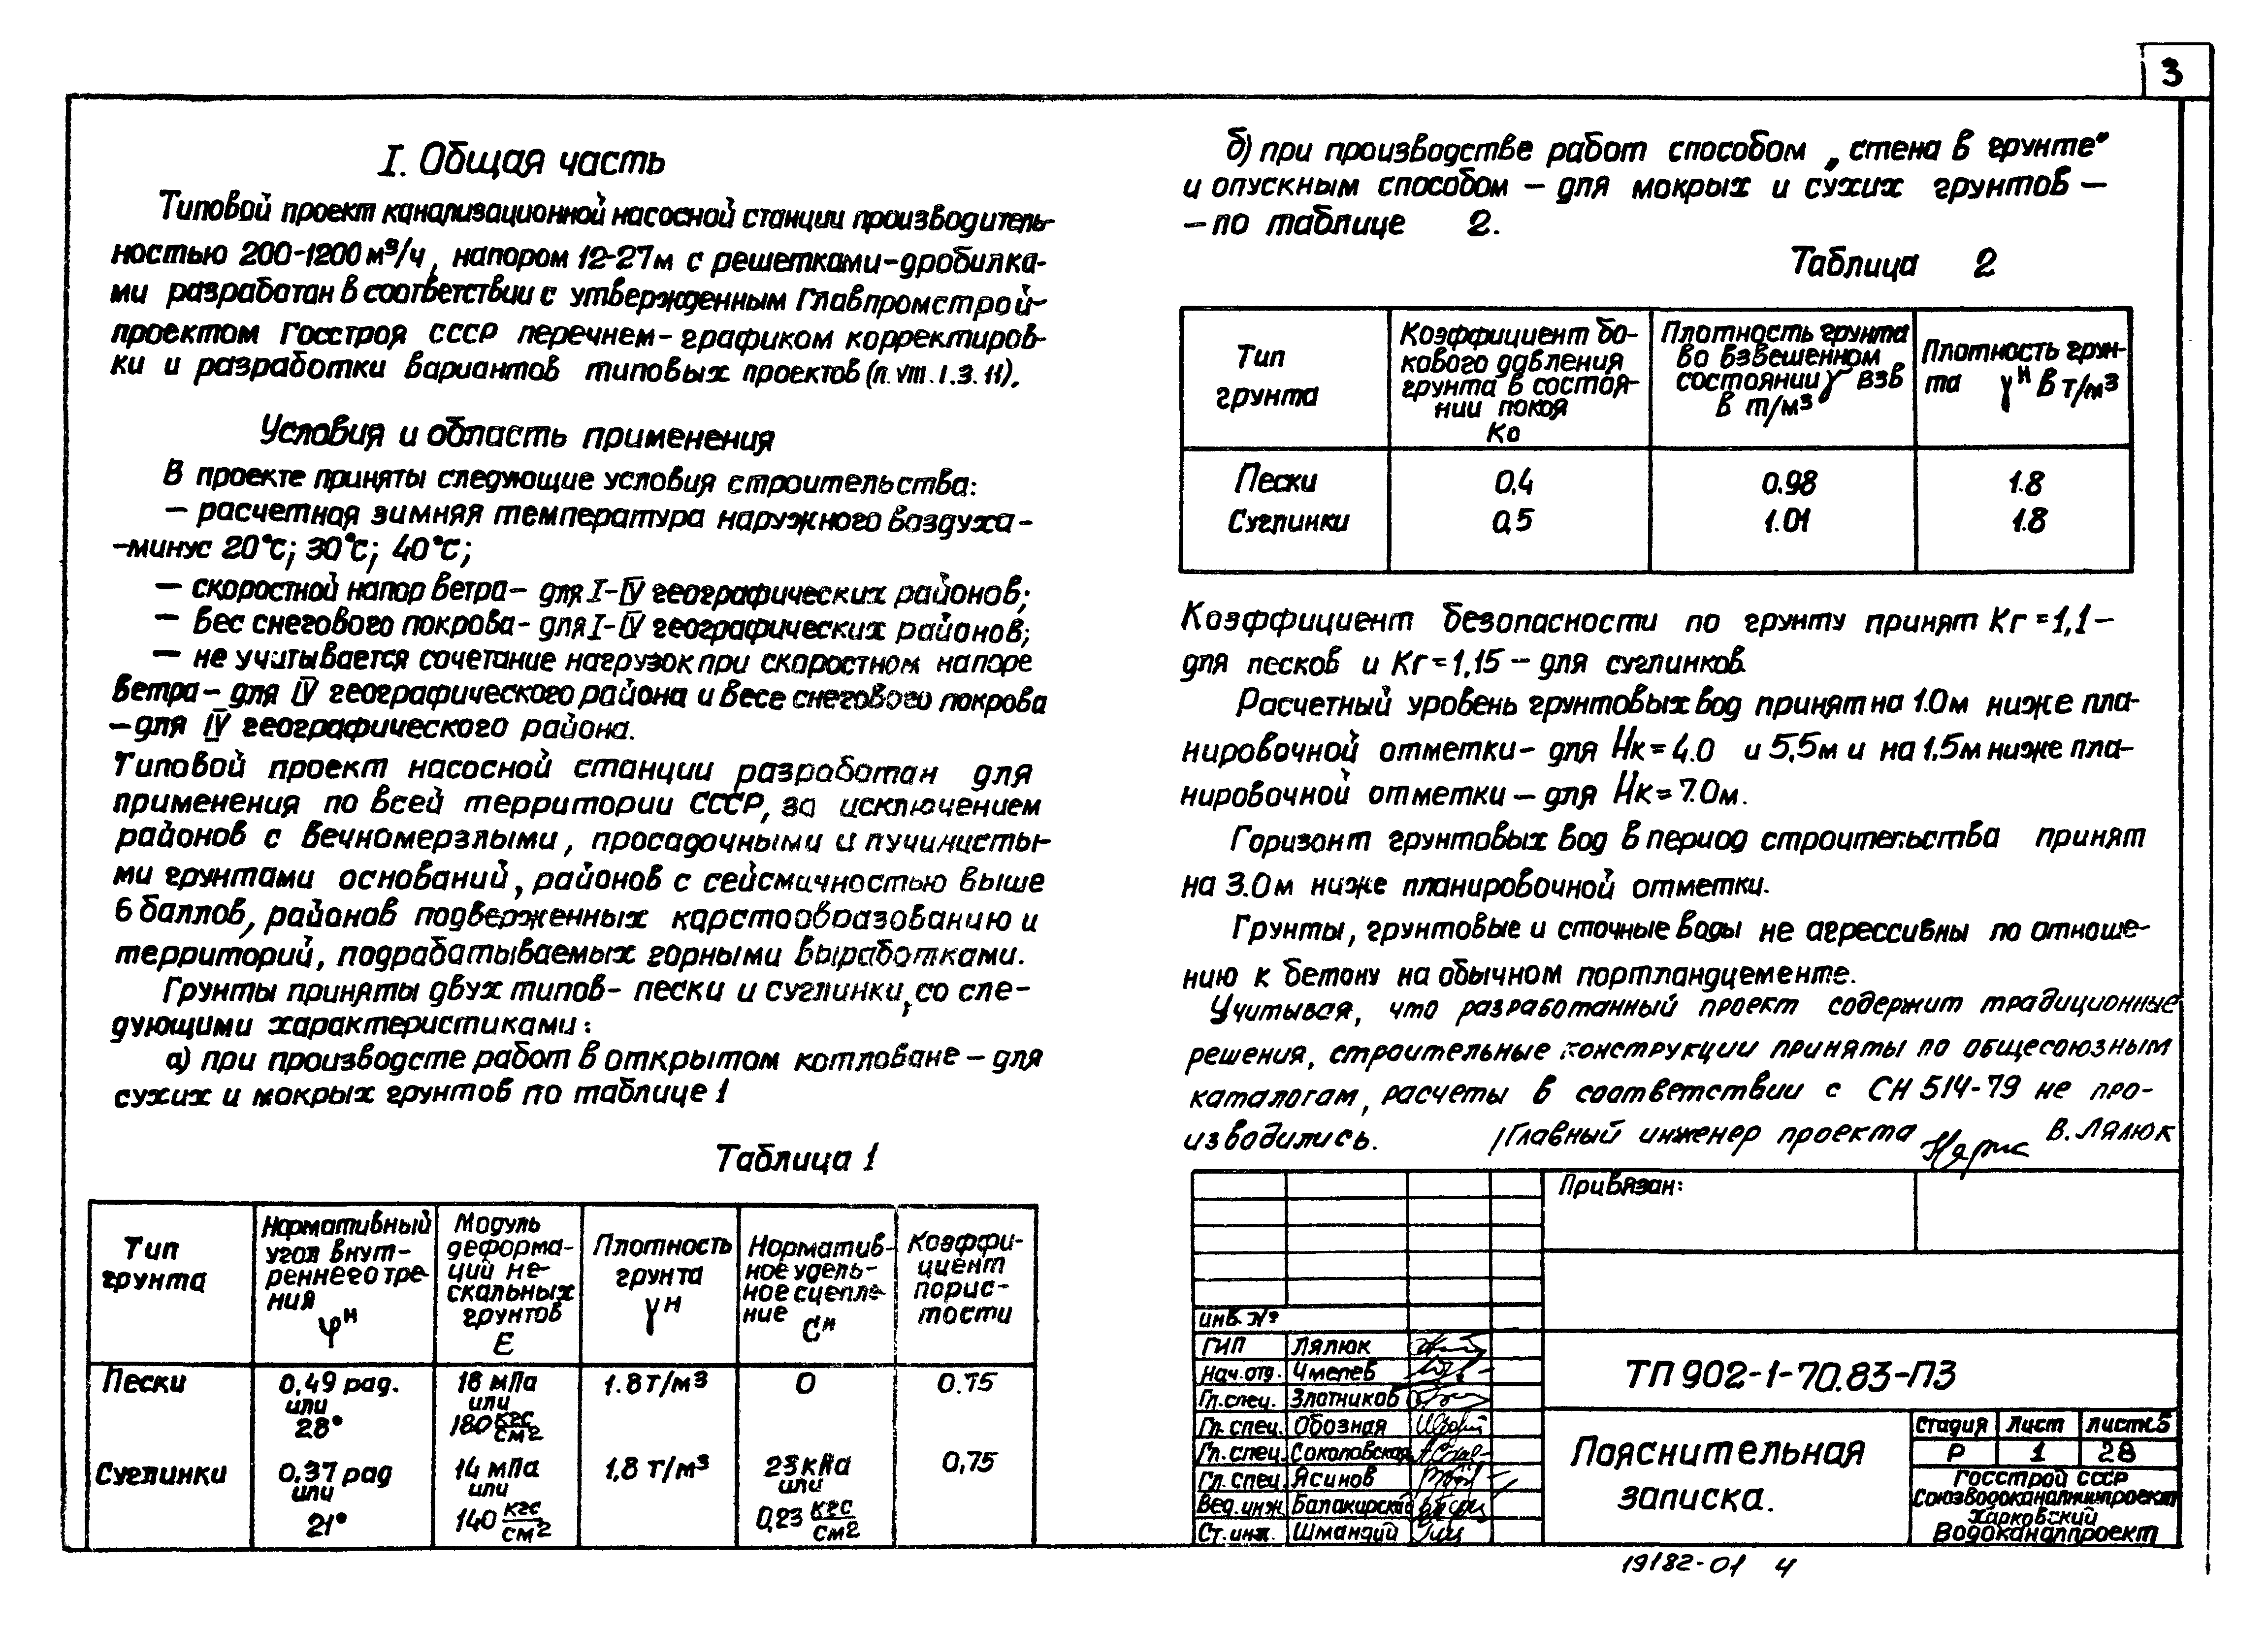 3
I. Общая часть
Типовой проект канализационной насосной станции производитель-
ностью 200-1200 м³/ч, напором 12-27м с решетками-дробилка-
ми разработан в соответствии с утвержденным Главпромстрой-
проектом Госстроя СССР перечнем-графиком корректиров-
ки и разработки вариантов типовых проектов (п. VIII. 1. 3. 11).
Условия и область применения
В проекте приняты следующие условия строительства:
— расчетная зимняя температура наружного воздуха-
-минус 20°С; 30°С; 40°С;
— скоростной напор ветра- для I-IV географических районов;
— вес снегового покрова- для I-IV географических районов;
— не учитывается сочетание нагрузок при скоростном напоре
ветра- для IV географического района и весе снегового покрова
-для IV географического района.
Типовой проект насосной станции разработан для
применения по всей территории СССР, за исключением
районов с вечномерзлыми, просадочными и пучинисты-
ми грунтами оснований, районов с сейсмичностью выше
6 баллов, районов подверженных карстообразованию и
территорий, подрабатываемых горными выработками.
Грунты приняты двух типов- пески и суглинки, со сле-
дующими характеристиками:
а) при производсте работ в открытом котловане - для
сухих и мокрых грунтов по таблице 1
Таблица 1
Тип грунта | Нормативный угол внут-реннего тре-ния φᴴ | Модуль деформа-ций не-скальных грунтов Е | Плотность грунта γᴴ | Норматив-ное удель-ное сцепле-ние Сᴴ | Коэффи-циент порис-тости
Пески | 0.49 рад. или 28° | 18 мПа или 180 кгс/см2 | 1.8 т/м3 | 0 | 0.75
Суглинки | 0.37 рад или 21° | 14 мПа или 140 кгс/см2 | 1.8 т/м3 | 23 кПа или 0,23 кгс/см2 | 0,75
б) при производстве работ способом „стена в грунте"
и опускным способом - для мокрых и сухих грунтов —
— по таблице 2.
Таблица 2
Тип грунта | Коэффициент бо-кового давления грунта в состоя-нии покоя Ко | Плотность грунта во взвешенном состоянии γ взв в т/м3 | Плотность грун-та γᴴ в т/м3
Пески | 0.4 | 0.98 | 1.8
Суглинки | 0,5 | 1.01 | 1.8
Коэффициент безопасности по грунту принят Кг=1,1-
для песков и Кг=1,15 - для суглинков.
Расчетный уровень грунтовых вод принят на 1.0м ниже пла-
нировочной отметки- для Нк=4.0 и 5,5м и на 1,5м ниже пла-
нировочной отметки - для Нк=7.0м.
Горизонт грунтовых вод в период строительства принят
на 3.0м ниже планировочной отметки.
Грунты, грунтовые и сточные воды не агрессивны по отноше-
нию к бетону на обычном портландцементе.
Учитывая, что разработанный проект содержит традиционные
решения, строительные конструкции приняты по общесоюзным
каталогам, расчеты в соответствии с СН 514-79 не про-
изводились. Главный инженер проекта В. Лялюк
Привязан:
инв. №
ГИП Лялюк
Нач. отд. Чмелев
Гл. спец. Златников
Гл. спец. Обозная
Гл. спец. Соколовская
Гл. спец. Ясинов
Вед. инж. Балакирский
Ст. инж. Шмандий
ТП 902-1-70.83-ПЗ
Пояснительная
записка.
Стадия Лист Листов
Р 1 28
Госстрой СССР
Союзводоканалниипроект
Харковский
Водоканалпроект
19182-01 4